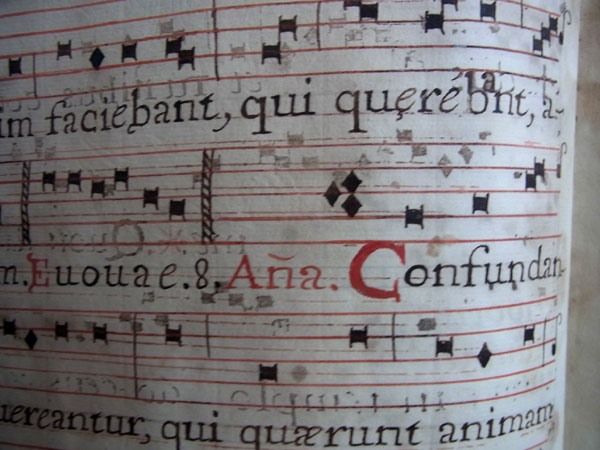 im faciebant, qui querébant, a-
m. Euouae. 8. Aña. Confundan-
uereantur, qui quærunt animam